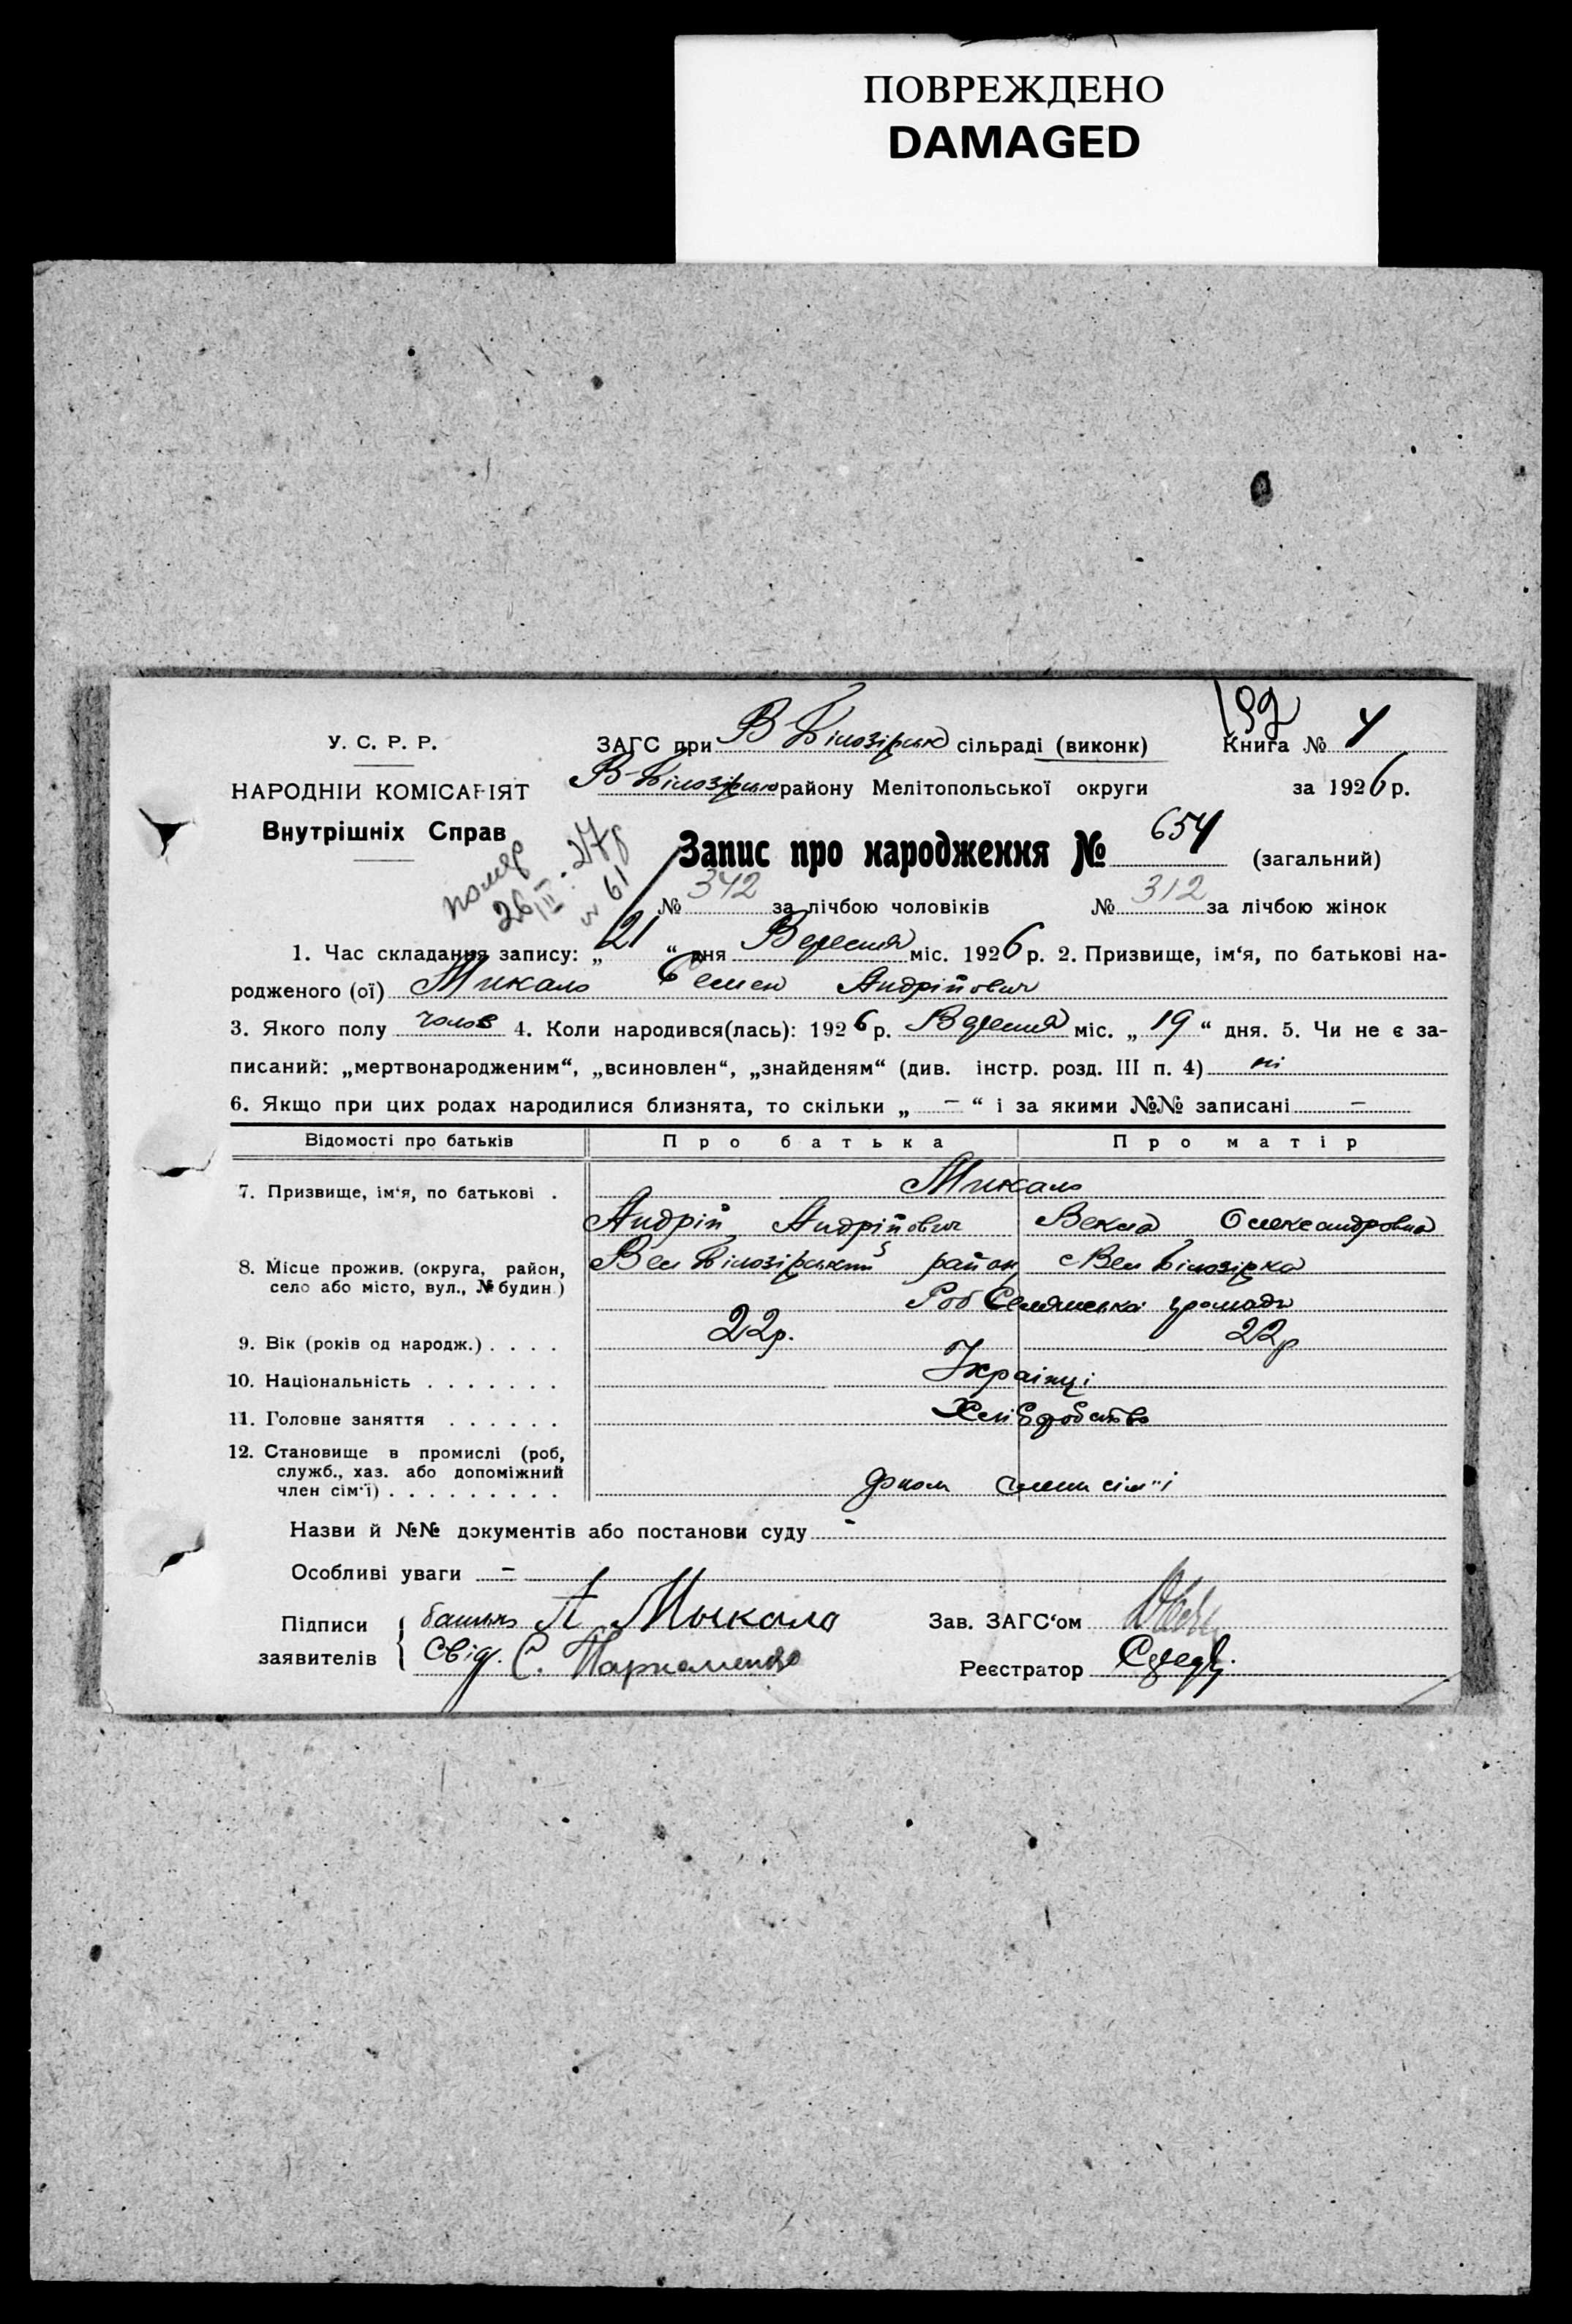 ПОВРЕЖДЕНО
DAMAGED
192
У. С. Р. Р.
ЗАГС при В Білозірськ сільраді (виконк) Книга № 4
НАРОДНІЙ КОМІСАРІЯТ
В-Білозірськ району Мелітопольської округи за 1926 р.
Внутрішніх Справ
помер 26/III-27р № 61
Запис про народження № 654 (загальний)
№ 342 за лічбою чоловіків № 312 за лічбою жінок
1. Час складання запису: „21“ дня Вересня міс. 1926 р. 2. Призвище, ім‘я, по батькові на-
родженого (ої) Микало Семен Андрійович
3. Якого полу чолов 4. Коли народився(лась): 1926 р. Вересня міс. „19“ дня. 5. Чи не є за-
писаний: „мертвонародженим“, „всиновлен“, „знайденям“ (див. інстр. розд. III п. 4) ні
6. Якщо при цих родах народилися близнята, то скільки „ – “ і за якими №№ записані –
Відомості про батьків Про батька Про матір
7. Призвище, ім‘я, по батькові . Микало
Андрій Андрійович Векла Олександровна
8. Місце прожив. (округа, район, село або місто, вул., № будин.) Вел Білозірський район Вел Білозірка
Роб Селянська громада
9. Вік (років од народж.) . . . . 22р. 22р
10. Національність . . . . . . . Українці
11. Головне заняття . . . . . . Хліборобство
12. Становище в промислі (роб,
служб., хаз. або допоміжний
член сім‘ї) . . . . . . . . . члени сім"ї
Назви й №№ документів або постанови суду -
Особливі уваги –
Підписи заявителів { батько А Мыкало Зав. ЗАГС‘ом
Свід. С. Пархоменко Реєстратор